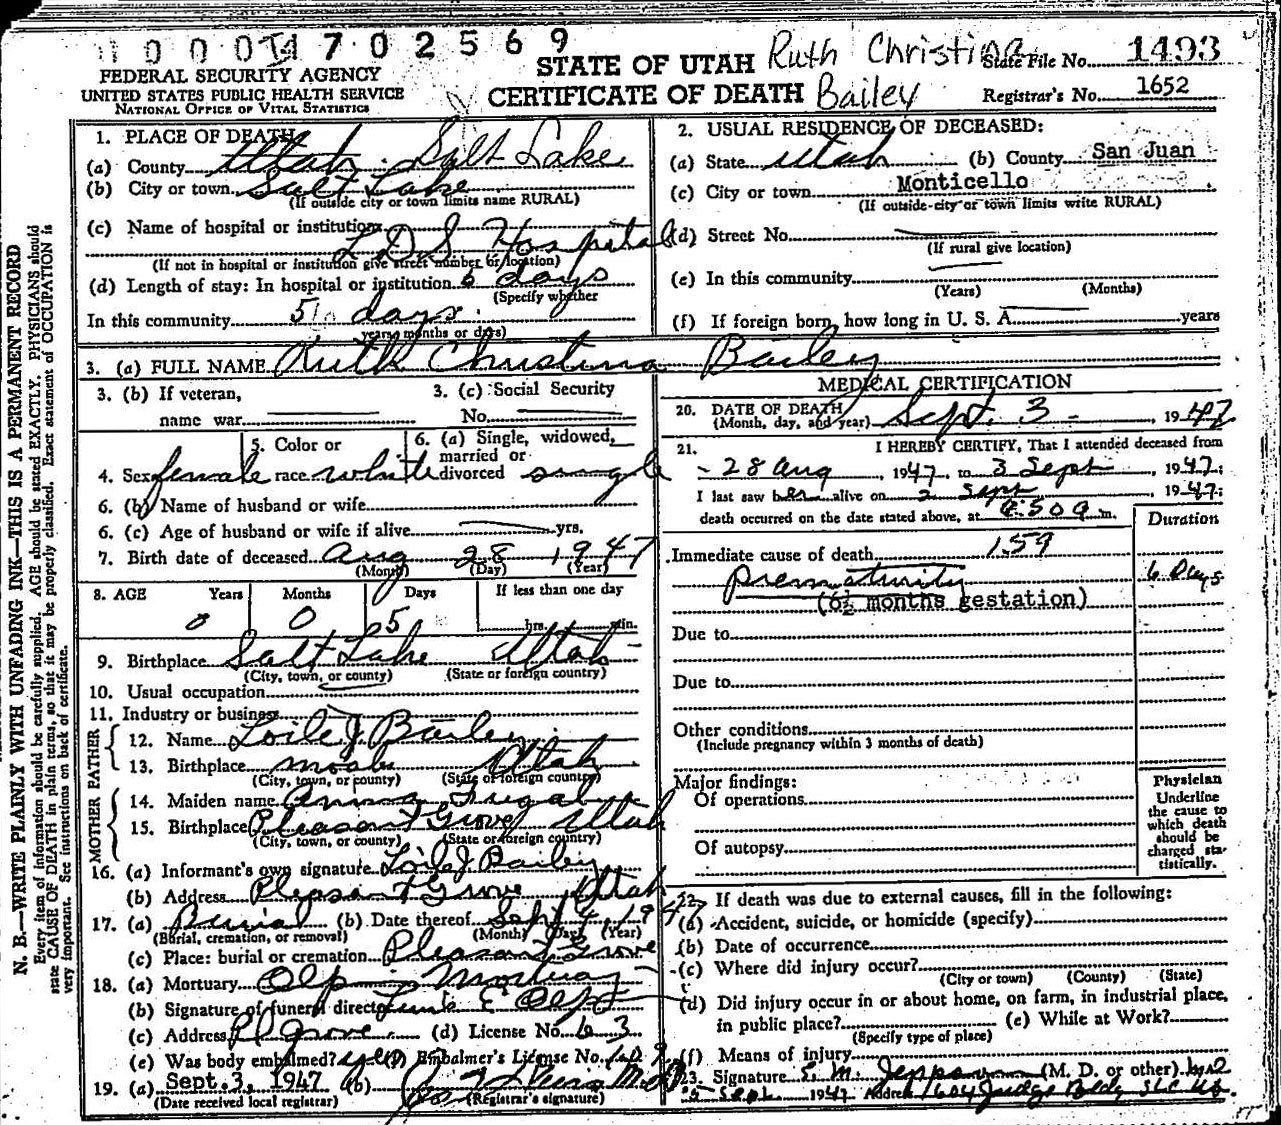 0 0 0 4 7 0 2 5 6 9
FEDERAL SECURITY AGENCY
UNITED STATES PUBLIC HEALTH SERVICE
NATIONAL OFFICE OF VITAL STATISTICS
STATE OF UTAH
CERTIFICATE OF DEATH
Ruth Christina
Bailey
State File No. 1493
Registrar's No. 1652
N. B.—WRITE PLAINLY WITH UNFADING INK—THIS IS A PERMANENT RECORD
Every item of information should be carefully supplied. AGE should be stated EXACTLY. PHYSICIANS should
state CAUSE OF DEATH in plain terms, so that it may be properly classified. Exact statement of OCCUPATION is
very important. See instructions on back of certificate.
1. PLACE OF DEATH
(a) County Utah Salt Lake
(b) City or town Salt Lake
(If outside city or town limits name RURAL)
(c) Name of hospital or institution
L.D.S. Hospital
(If not in hospital or institution give street number or location)
(d) Length of stay: In hospital or institution 6 days
(Specify whether
In this community 5 days
years months or days)
2. USUAL RESIDENCE OF DECEASED:
(a) State Utah (b) County San Juan
(c) City or town Monticello
(If outside city or town limits write RURAL)
(d) Street No.
(If rural give location)
(e) In this community
(Years) (Months)
(f) If foreign born, how long in U. S. A. years
3. (a) FULL NAME Ruth Christina Bailey
3. (b) If veteran,
name war
3. (c) Social Security
No.
4. Sex female
5. Color or
race white
6. (a) Single, widowed,
married or
divorced single
6. (b) Name of husband or wife
6. (c) Age of husband or wife if alive yrs.
7. Birth date of deceased Aug 28 1947
(Month) (Day) (Year)
8. AGE Years Months Days If less than one day
0 0 5 hrs. min.
9. Birthplace Salt Lake Utah
(City, town, or county) (State or foreign country)
10. Usual occupation
11. Industry or business
FATHER
12. Name Loile J. Bailey
13. Birthplace Moab Utah
(City, town, or county) (State or foreign country)
MOTHER
14. Maiden name Anna
15. Birthplace Pleasant Grove Utah
(City, town, or county) (State or foreign country)
16. (a) Informant's own signature Loile J. Bailey
(b) Address Pleasant Grove Utah
17. (a) Burial (b) Date thereof Sept 4, 1947
(Burial, cremation, or removal) (Month) (Day) (Year)
(c) Place: burial or cremation Pleasant Grove
18. (a) Mortuary Olpin Mortuary
(b) Signature of funeral director E Olpin
(c) Address Pl Grove (d) License No. 63
(e) Was body embalmed? yes (f) Embalmer's License No.
19. (a) Sept. 3, 1947 (b) M.D.
(Date received local registrar) (Registrar's signature)
MEDICAL CERTIFICATION
20. DATE OF DEATH
(Month, day, and year) Sept. 3 1947
21. I HEREBY CERTIFY, That I attended deceased from
28 Aug 1947, to 3 Sept, 1947;
I last saw her alive on 2 Sept, 1947;
death occurred on the date stated above, at m.
Duration
Immediate cause of death 159
prematurity 6 Days
(6½ months gestation)
Due to
Due to
Other conditions
(Include pregnancy within 3 months of death)
Major findings:
Of operations
Of autopsy
Physician
Underline
the cause to
which death
should be
charged sta-
tistically.
22. If death was due to external causes, fill in the following:
(a) Accident, suicide, or homicide (specify)
(b) Date of occurrence
(c) Where did injury occur?
(City or town) (County) (State)
(d) Did injury occur in or about home, on farm, in industrial place,
in public place? (e) While at Work?
(Specify type of place)
(f) Means of injury
23. Signature E. M. Jeppson (M. D. or other) M.D.
5 Sept. 1947 Address 1604 Judge Bldg SLC